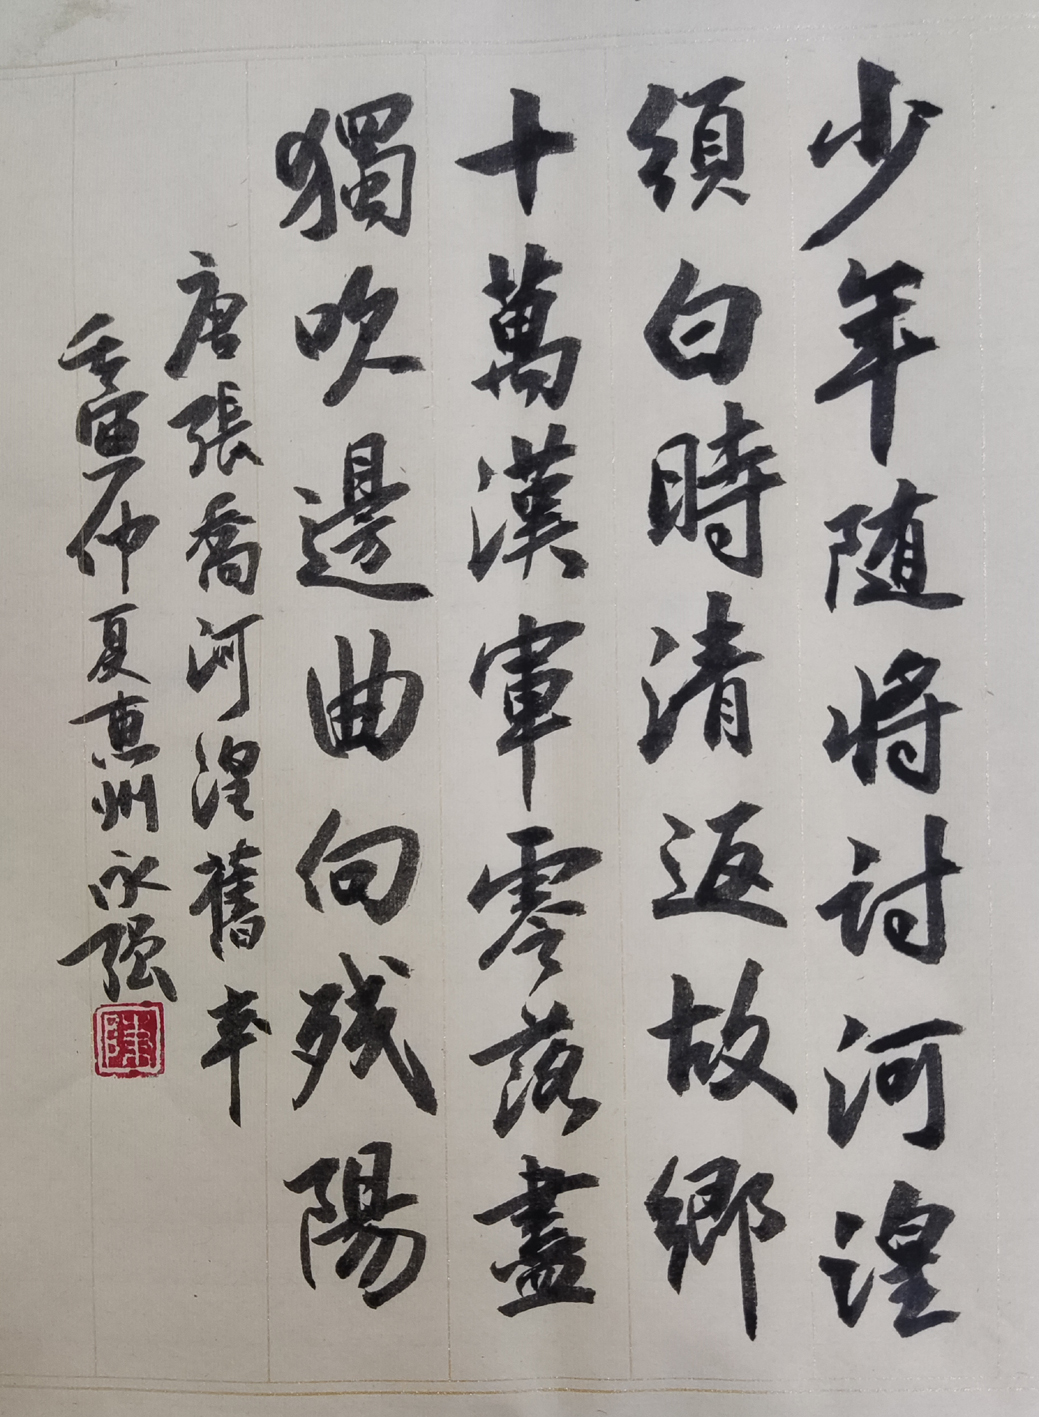 少年随将討河湟
須白時清返故鄉
十萬漢軍零落盡
獨吹邊曲向残陽
唐張喬河湟舊卒
壬寅仲夏惠州永强
陳